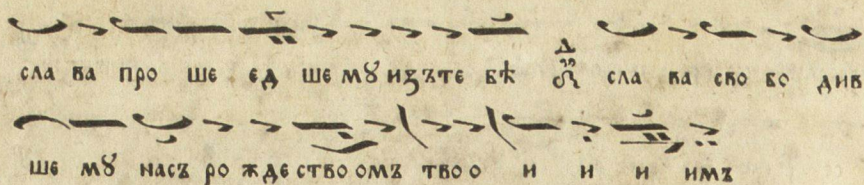 сла ва про ше ед ше мꙋ изъ те бѣ сла ва сво бо див
ше мꙋ насъ ро жде ство омъ тво о и и и имъ